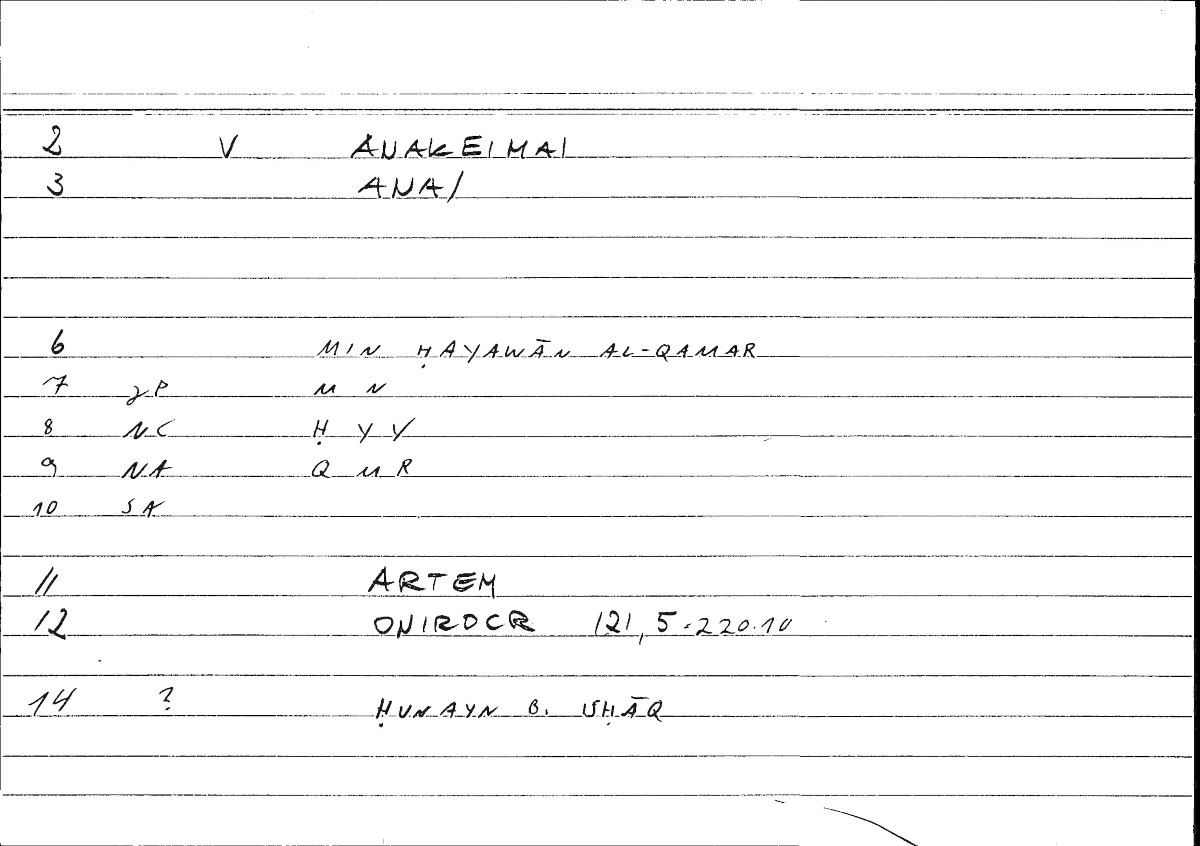 2 V ANAKEIMAI
3 ANA/
6 MIN ḤAYAWĀN AL-QAMAR
7 P M N
8 NC Ḥ Y Y
9 NA Q M R
10 SA
11 ARTEM
12 ONIROCR 121,5=220.10
14 ? ḤUNAYN B. ISḤĀQ